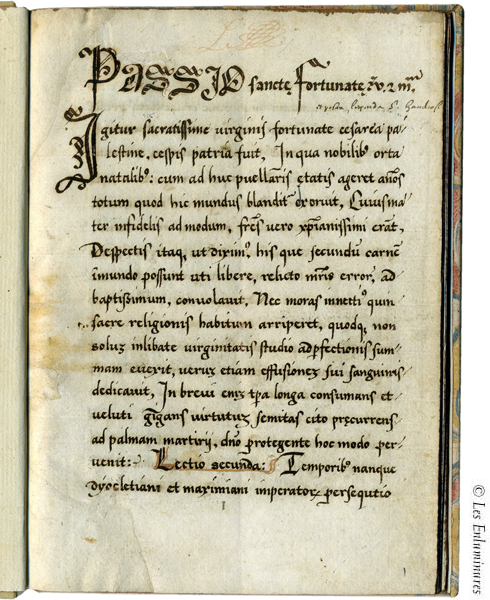 PASSIO sanctę fortunatę v. et m.
Igitur sacratissime virginis fortunate cesarea pa-
lestine, cespis patria fuit, In qua nobilibꝰ orta
natalibꝰ: cum ad huc puellaris etatis ageret años
totum quod hic mundus blandit exoruit, Cuius ma-
ter infidelis ad modum, fres vero xp̃ianissimi erãt,
Despectis itaqꝫ, ut diximꝰ, his que secundũ carnẽ
ĩmundo possunt uti libere, relicto mr̃is error, ad
baptissimum, convolavit, Nec moras innetti quin
sacre religionis habitum arriperet, quodqꝫ, non
soluꝫ inlibate virginitatis studio adperfectionis sum-
mam everit, veruꝫ etiam effusioneꝫ sui sanguinis
dedicavit, In brevi eniꝫ tp̃a longa consumans et
veluti gigans virtutuꝫ semitas cito pręcurrens
ad palmam martirij, dño protegente hoc modo per-
venit: Lectio secunda: Temporibꝰ nanque
dyocletiani et maximiani imperatorꝝ persequtio
1
© Les Enluminures